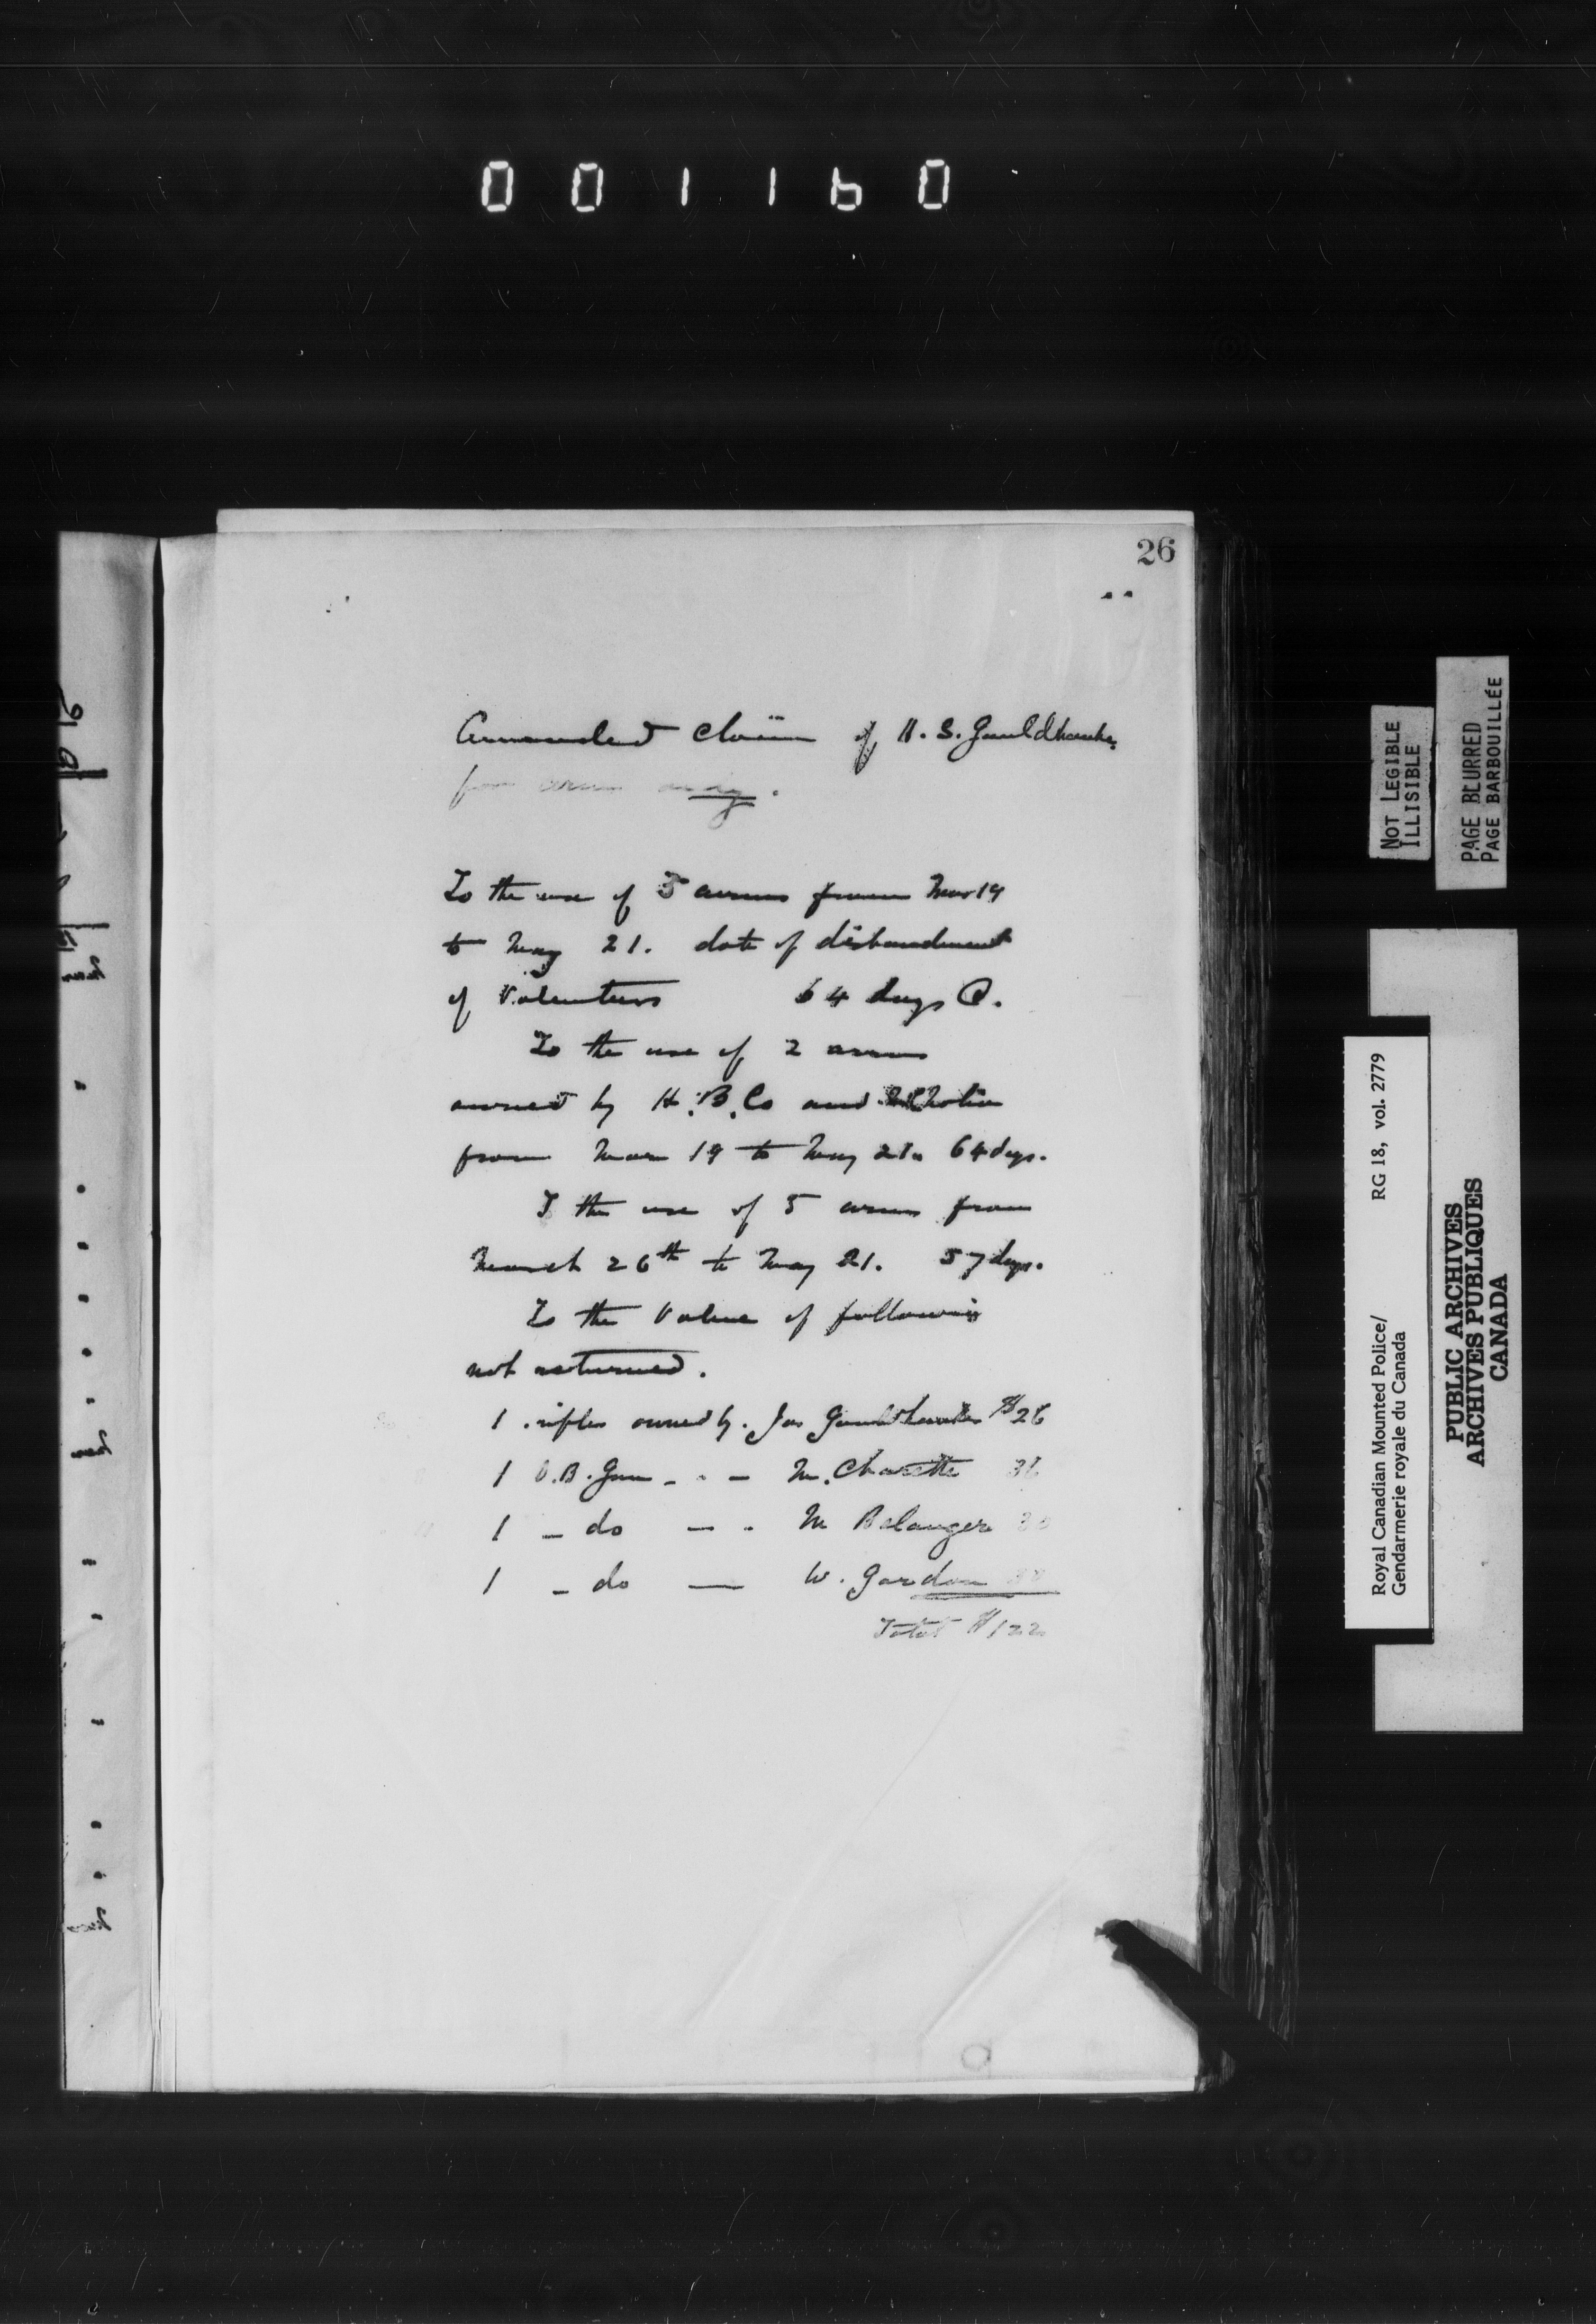 001160
26
Ammended claim of H. S. Gauldhawke
for arms
To the use of 5 arms from Mar 19
to May 21. date of disbandment
of Volunteers 64 days @.
To the use of 2 arms
owned by H.B.Co and
from Mar 19 to May 21. 64 days.
T the use of 5 arms from
March 26th to May 21. 57 days.
To the Value of following
not returned.
1 rifles owned by Jas Gauldhawke $26
1 D.B. Gun - - - M. Charette 36
1 - do - - M Belanger
1 - do — W. Gordon
Total $122
NOT LEGIBLE
ILLISIBLE
PAGE BLURRED
PAGE BARBOUILLÉE
Royal Canadian Mounted Police/ RG 18, vol. 2779
Gendarmerie royale du Canada
PUBLIC ARCHIVES
ARCHIVES PUBLIQUES
CANADA